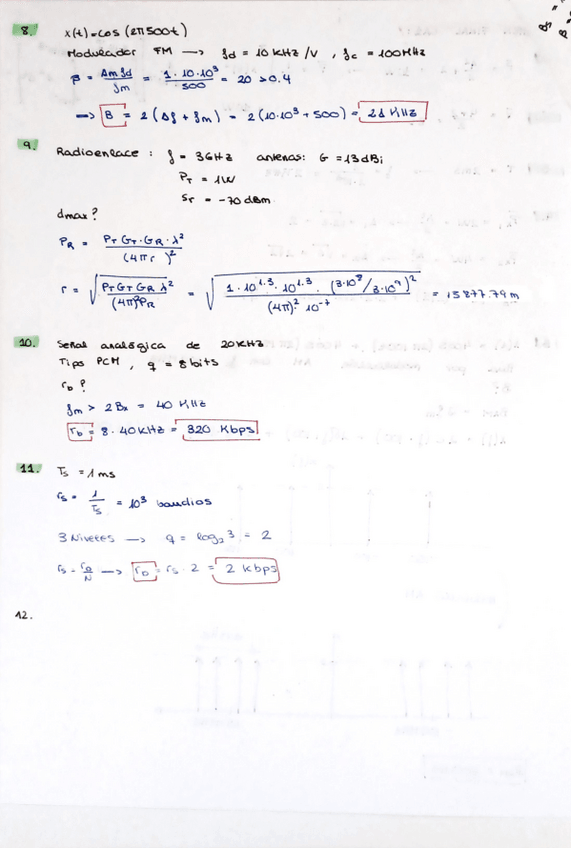 8. x(t) = cos (2π500t)
Modulador FM → fd = 10 kHz/V , fc = 100MHz
β = Am fd / fm = 1·10·10³ / 500 = 20 > 0.4
→ B = 2 (Δf + fm) = 2 (10·10³ + 500) = 21 KHz
9. Radioenlace : f = 3GHz antenas: G = 13dBi
PT = 1W
Sr = -70 dBm
dmax?
PR = PT GT · GR · λ² / (4πr)²
r = √(PT GT GR λ² / (4π)² PR) = √(1 · 10^1.3 · 10^1.3 · (3·10⁸/3·10⁹)² / (4π)² 10^-7) = 15877.79 m
10. Señal analógica de 20KHz
Tipo PCM , q = 8bits
rb?
fm > 2Bx = 40 KHz
rb = 8 · 40KHz = 320 Kbps
11. Ts = 1ms
rs = 1/Ts = 10³ baudios
3 Niveles → q = log₂ 3 = 2
rs = rb/N → rb = rs · 2 = 2 kbps
12.